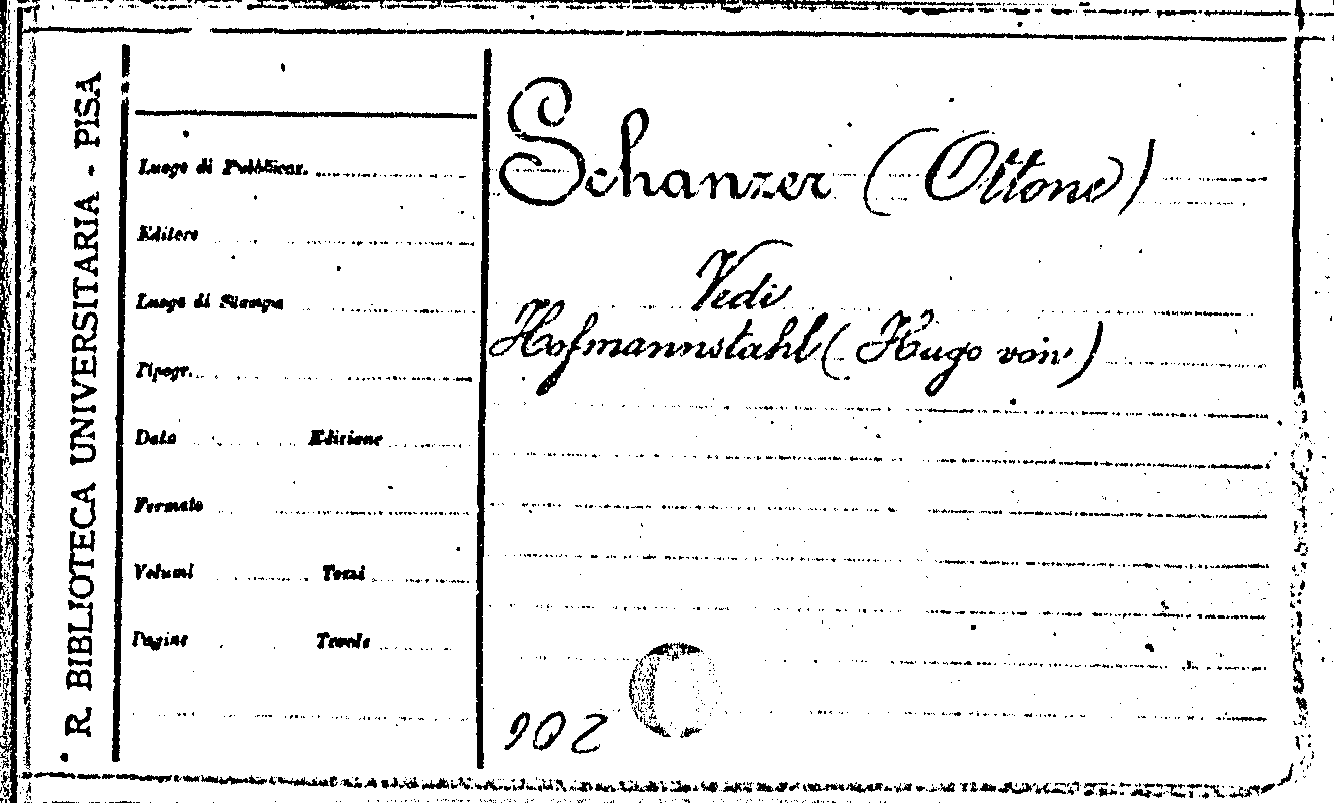 R. BIBLIOTECA UNIVERSITARIA - PISA
Luogo di Pubblicaz.
Editore
Luogo di Stampa
Tipogr.
Data Edizione
Formato
Volumi Tomi
Pagine Tavole
Schanzer (Ottone)
Vedi
Hofmannstahl (Hugo von)